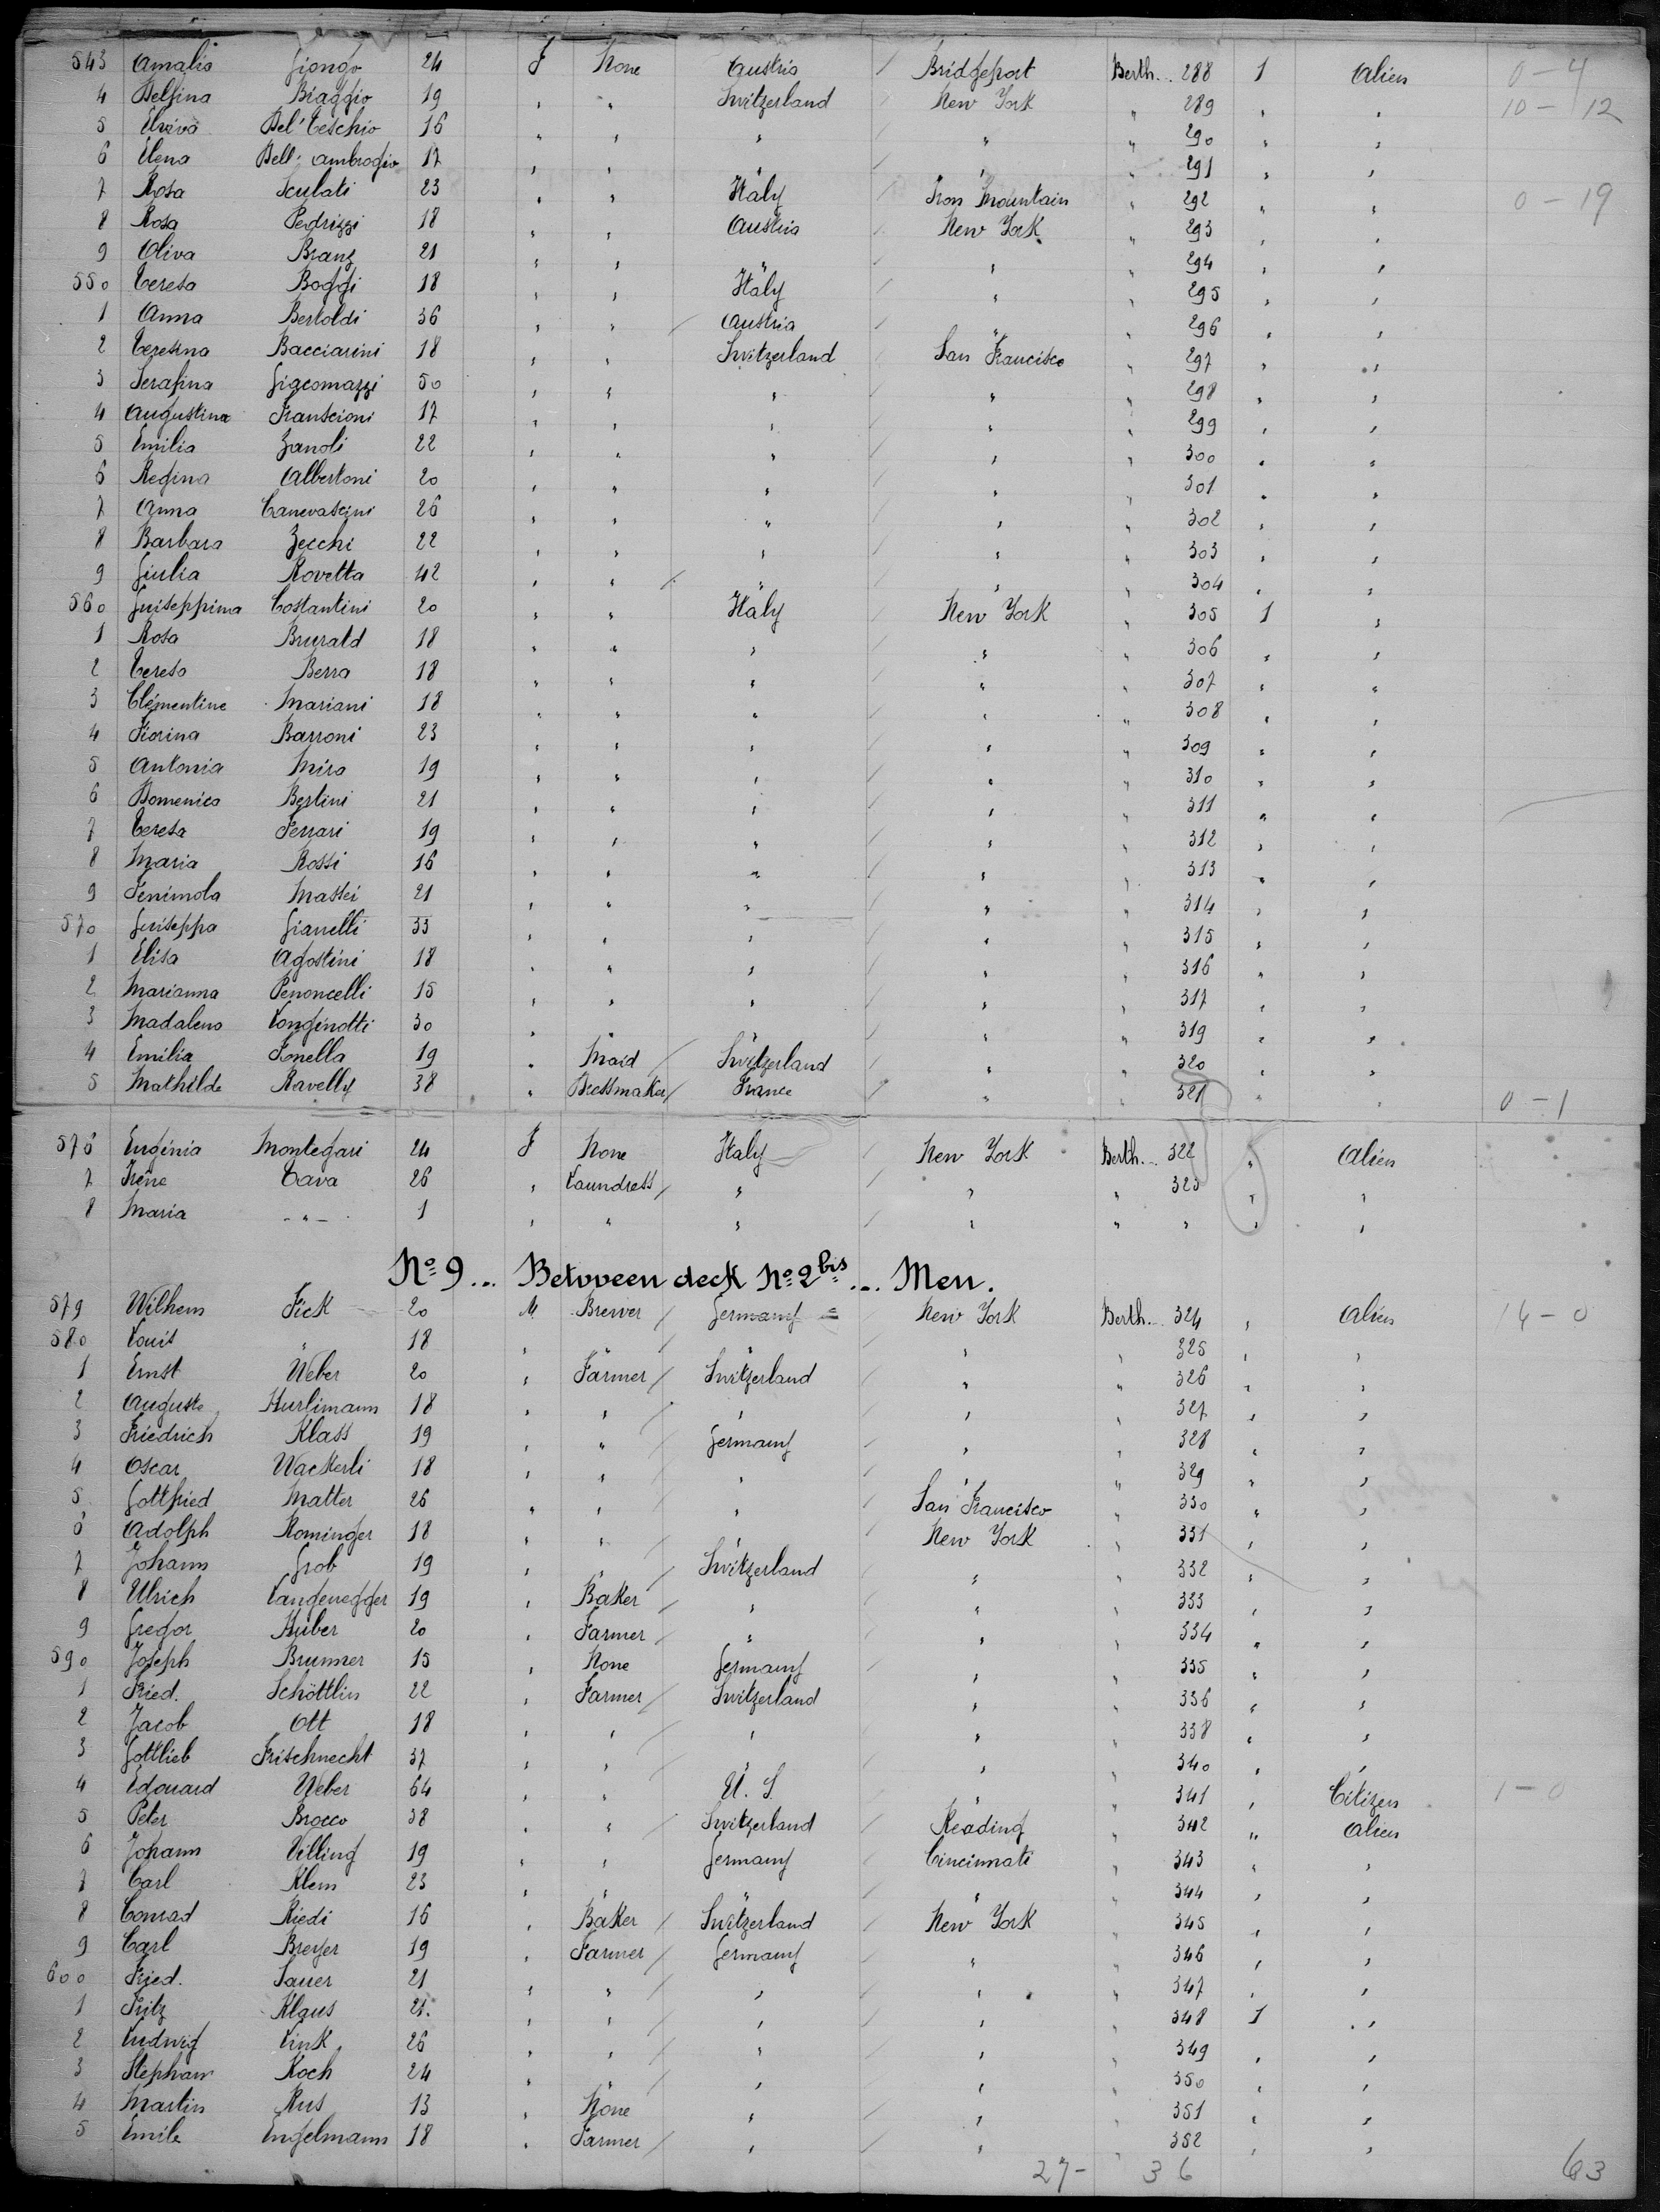 543 Amalia Giongo 24 F None Austria / Bridgeport Berth... 288 1 Alien 0 - 4
4 Delfina Biaggio 19 " " Switzerland / New York " 289 " " 10 - 12
5 Elvira Del' Teschio 16 " " " / " " 290 " "
6 Elena Dell' Ambrogio 17 " " " / " " 291 " "
7 Rosa Sculati 23 " " Italy / Iron Mountain " 292 " " 0 - 19
8 Rosa Pedrizzi 18 " " Austria / New York " 293 " "
9 Oliva Branz 21 " " " / " " 294 " "
550 Teresa Boggi 18 " " Italy / " " 295 " "
1 Anna Bertoldi 36 " " / Austria / " " 296 " "
2 Teresina Bacciarini 18 " " Switzerland / San Francisco " 297 " "
3 Serafina Giacomazzi 50 " " " / " " 298 " "
4 Augustina Franscioni 17 " " " / " " 299 " "
5 Emilia Zanoli 22 " " " / " " 300 " "
6 Regina Albertoni 20 " " " / " " 301 " "
7 Anna Canevascini 26 " " " / " " 302 " "
8 Barbara Zecchi 22 " " " / " " 303 " "
9 Giulia Rovetta 42 " " / " / " " 304 " "
560 Guiseppina Costantini 20 " " Italy / New York " 305 1 "
1 Rosa Brurald 18 " " " / " " 306 " "
2 Teresa Berra 18 " " " / " " 307 " "
3 Clémentine Mariani 18 " " " / " " 308 " "
4 Fiorina Barroni 23 " " " / " " 309 " "
5 Antonia Miro 19 " " " / " " 310 " "
6 Domenica Bertini 21 " " " / " " 311 " "
7 Teresa Ferrari 19 " " " / " " 312 " "
8 Maria Rossi 16 " " " / " " 313 " "
9 Fenimola Massei 21 " " " / " " 314 " "
570 Guiseppa Gianelli 33 " " " / " " 315 " "
1 Elisa Agostini 18 " " " / " " 316 " "
2 Marianna Penoncelli 15 " " " / " " 317 " "
3 Madalena Longinotti 30 " " " / " " 319 " "
4 Emilia Fonella 19 " Maid / Switzerland / " " 320 " "
5 Mathilde Ravelly 38 " Dressmaker / France / " " 321 " " 0 - 1
576 Eugénia Montegari 24 F None Italy / New York Berth... 322 " Alien
7 Irène Cava 26 " Laundress / " / " " 323 " "
8 Maria - " - 1 " " " / " " " " "
No 9 ... Between deck No 2 bis ... Men.
579 Wilhem Fick 20 M. Brewer / Germany New York Berth... 324 " Alien 14 - 0
580 Louis " 18 " " / " / " " 325 " "
1 Ernst Weber 20 " Farmer / Switzerland / " " 326 " "
2 Auguste Hurlimann 18 " " / " / " " 327 " "
3 Friedrich Klass 19 " " / Germany / " " 328 " "
4 Oscar Wackerli 18 " " / " / " " 329 " "
5 Gottfried Matter 26 " " / " / San Francisco " 330 " "
6 Adolph Rominger 18 " " / " / New York " 331 " "
7 Johann Grob 19 " " / Switzerland / " " 332 " "
8 Ulrich Langenegger 19 " Baker / " / " " 333 " "
9 Gregor Huber 20 " Farmer / " / " " 334 " "
590 Joseph Brunner 15 " None Germany / " " 335 " "
1 Fried. Schöttlin 22 " Farmer / Switzerland / " " 336 " "
2 Jacob Ott 18 " " / " / " " 338 " "
3 Gottlieb Frischnecht 37 " " / " / " " 340 " "
4 Edouard Weber 64 " " U. S. / " " 341 " Citizen 1 - 0
5 Peter Brocco 38 " " / Switzerland / Reading " 342 " Alien
6 Johann Villing 19 " " / Germany / Cincinnati " 343 " "
7 Carl Klem 23 " " / " / " " 344 " "
8 Conrad Riedi 16 " Baker / Switzerland / New York " 345 " "
9 Carl Breyer 19 " Farmer / Germany / " " 346 " "
600 Fried. Sauer 21 " " / " / " " 347 " "
1 Fritz Klaus 21. " " / " / " " 348 1 "
2 Ludwig Link 26 " " / " / " " 349 " "
3 Stephan Koch 24 " " / " / " " 350 " "
4 Martin Rus 13 " None " / " " 351 " "
5 Emile Engelmann 18 " Farmer / " / " 352 " "
27 - 36 63